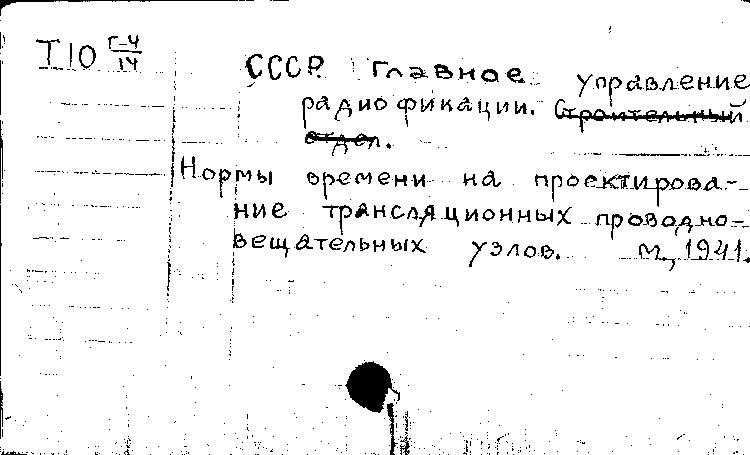 I10 Г-4/14
СССР. Главное управление
радиофикации. Строительный
отдел.
Нормы времени на проектирова-
ние трансляционных проводно-
вещательных узлов. М., 1941.